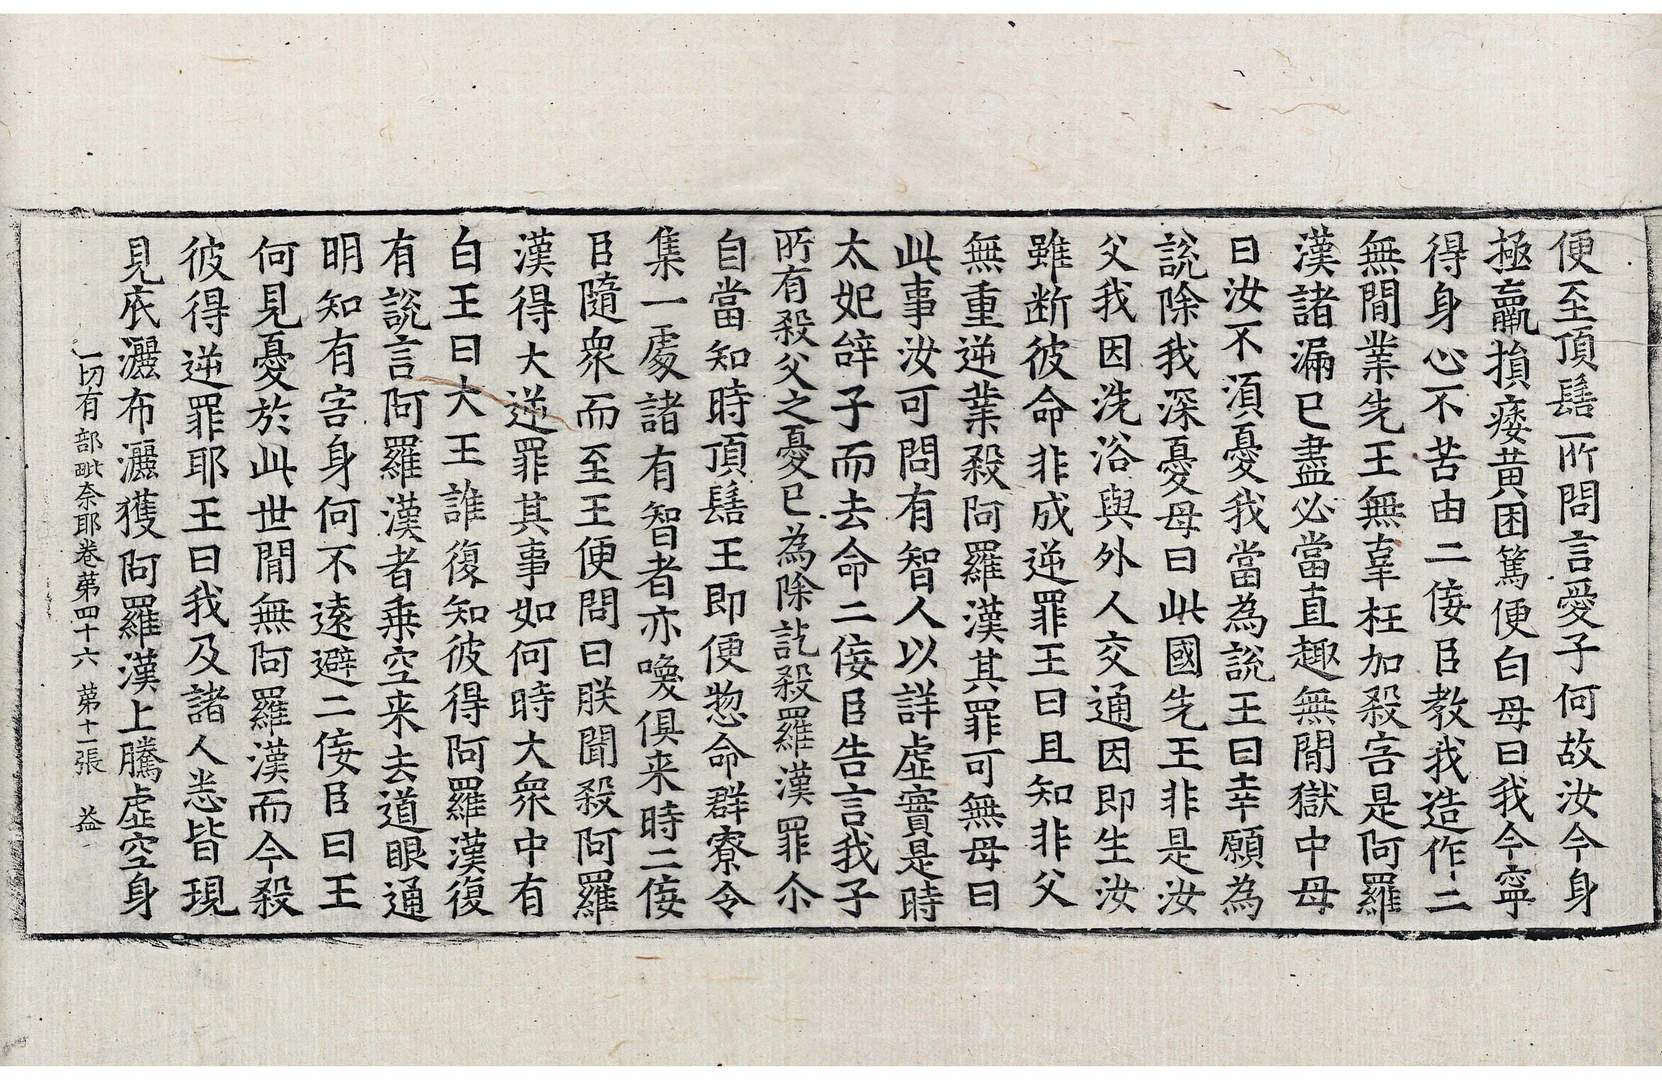 便至頂髻所問言愛子何故汝今身
極羸損痿黃困篤便白母曰我今寧
得身心不苦由二佞臣教我造作二
無間業先王無辜枉加殺害是阿羅
漢諸漏已盡必當直趣無間獄中母
曰汝不湏憂我當為說王曰幸願為
說除我深憂母曰此國先王非是汝
父我因洗浴與外人交通因即生汝
雖断彼命非成逆罪王曰且知非父
無重逆業殺阿羅漢其罪可無母曰
此事汝可問有智人以詳虛實是時
太妃辝子而去命二佞臣告言我子
所有殺父之憂已為除訖殺羅漢罪尒
自當知時頂髻王即便惣命群寮令
集一處諸有智者亦喚俱来時二佞
臣隨眾而至王便問曰朕聞殺阿羅
漢得大逆罪其事如何時大眾中有
白王曰大王誰復知彼得阿羅漢復
有說言阿羅漢者乗空来去道眼通
明知有害身何不遠避二佞臣曰王
何見憂於此世間無阿羅漢而今殺
彼得逆罪耶王曰我及諸人悉皆現
見底灑布灑獲阿羅漢上騰虛空身
一切有部毗奈耶卷苐四十六 苐十一張 益